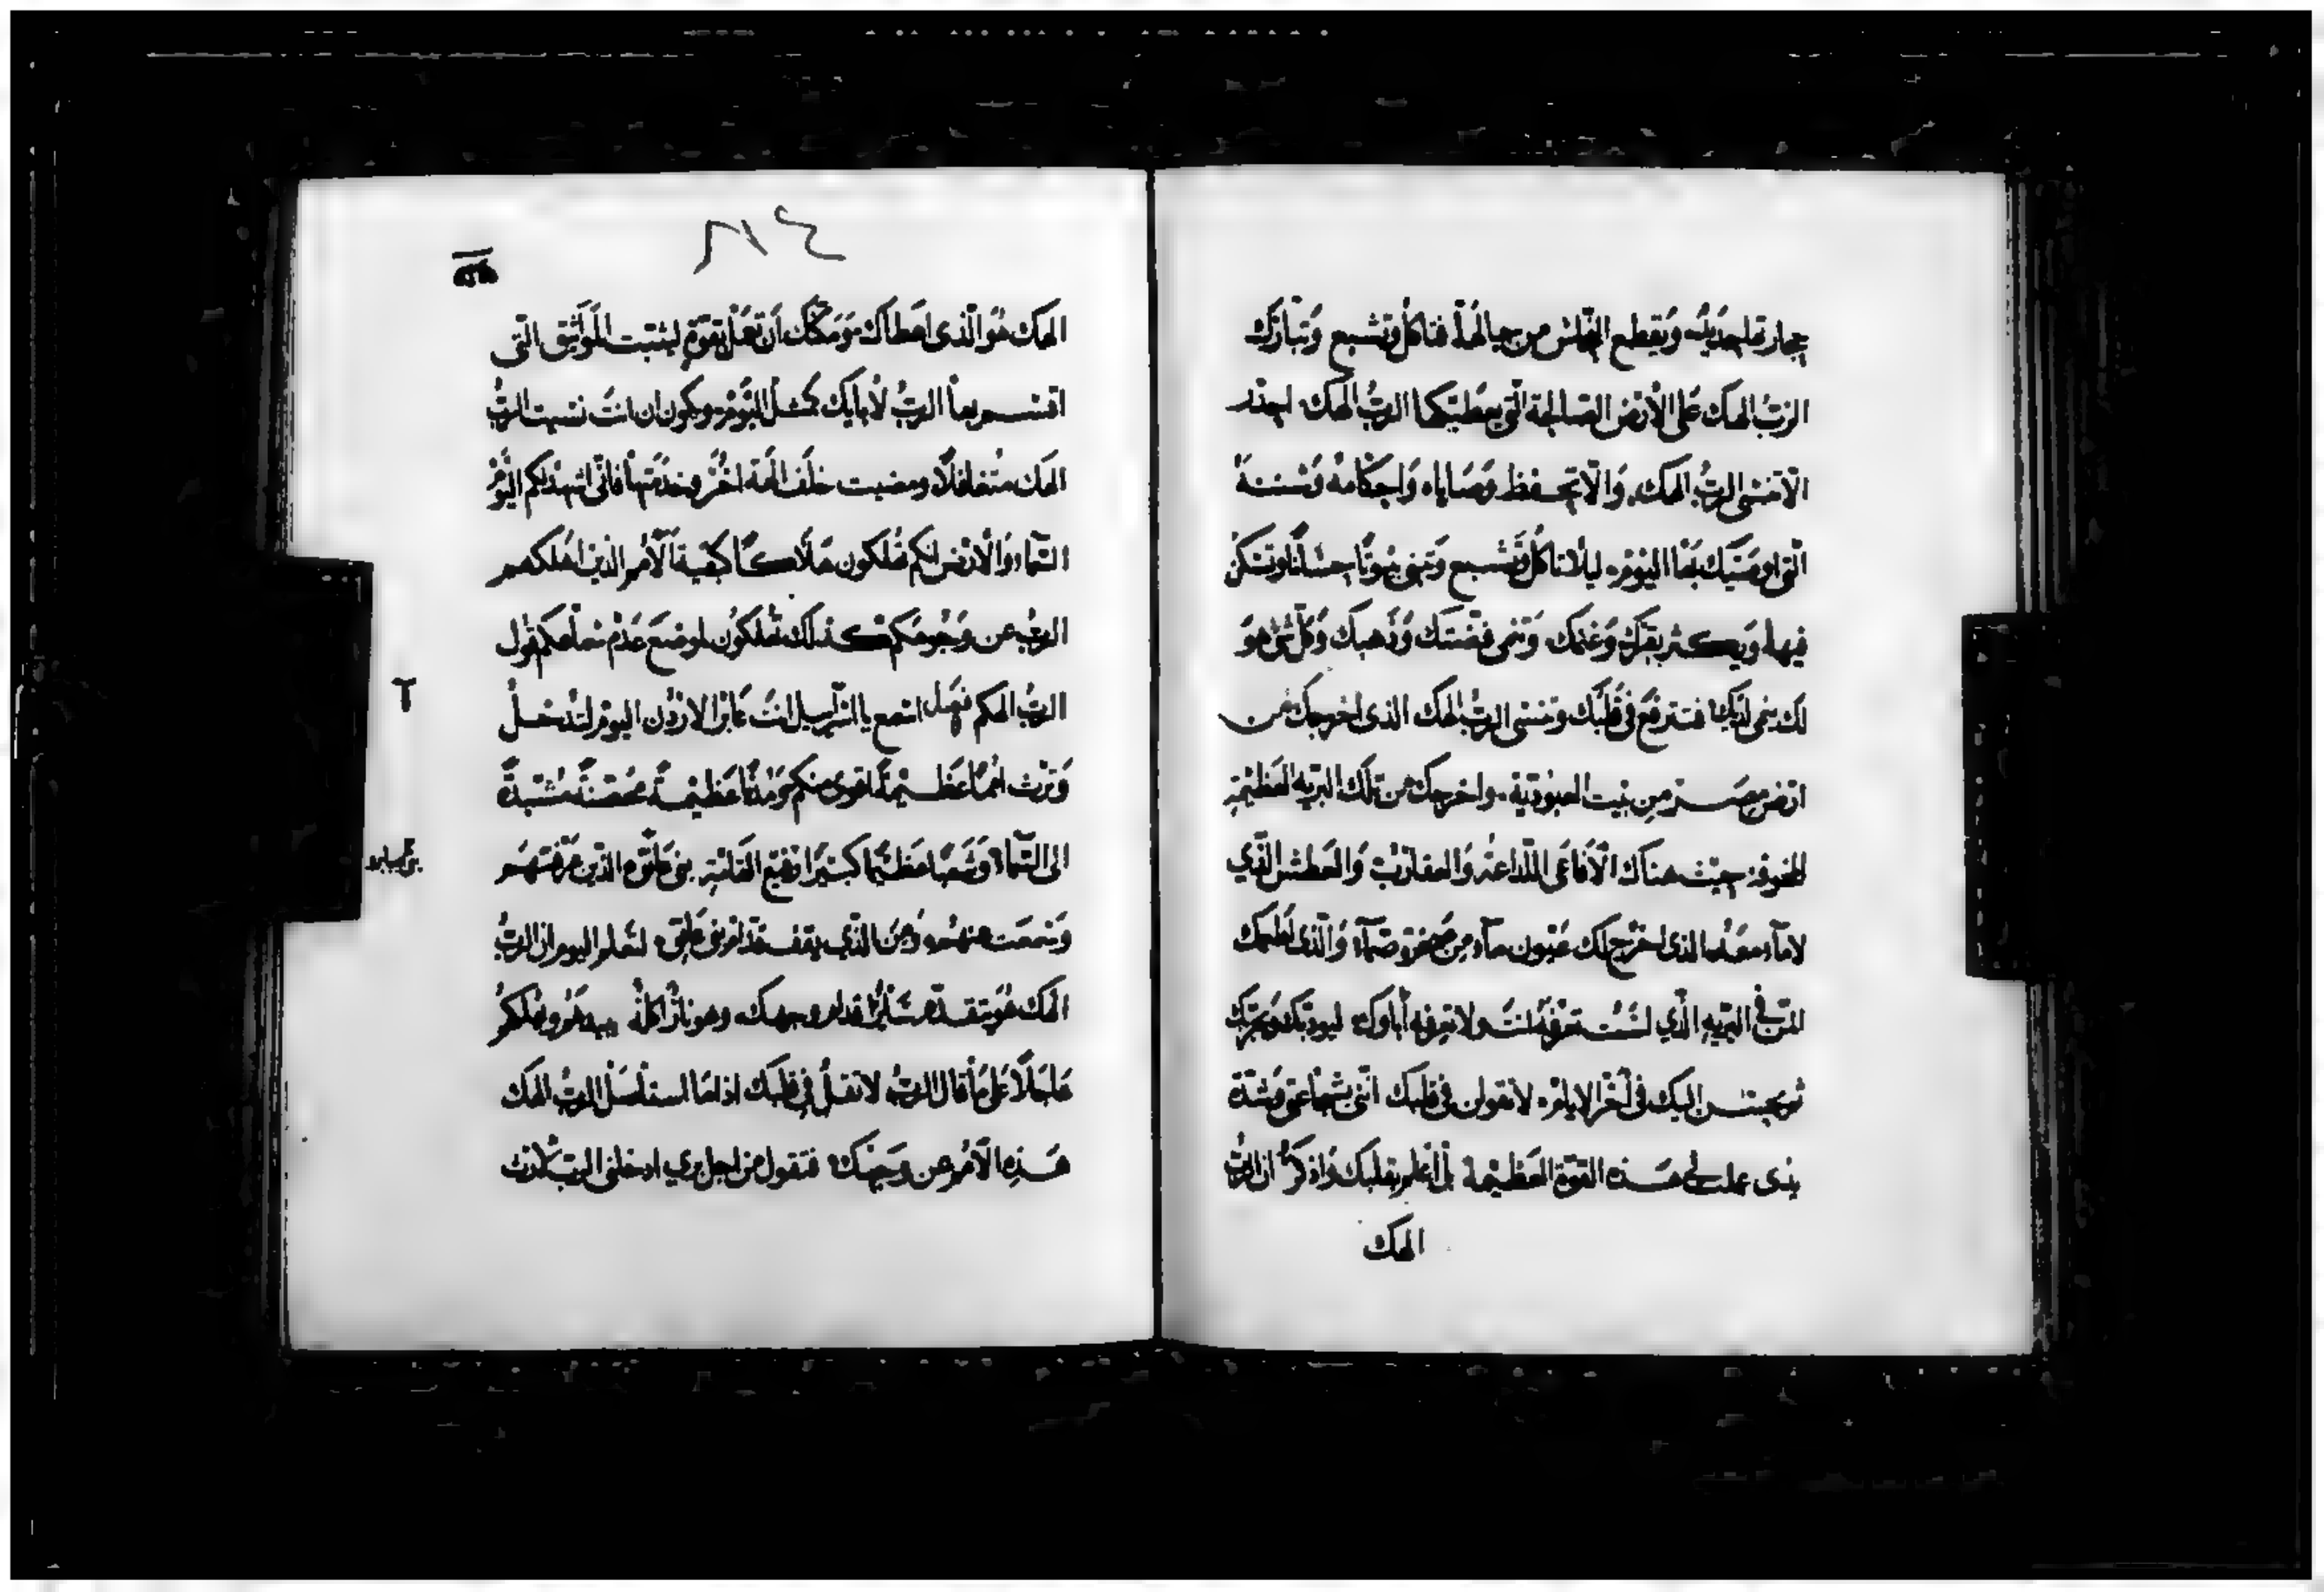 حجارتها حديد وتقطع النحاس من جبالها فتاكل وتشبع وتبارك
الرب الهك على الارض الصالحة التي يعطيكها الرب الهك احذر
الا تنسى الرب الهك والا تحفظ وصاياه واحكامه وسننه
التي اوصيك بها اليوم ليلا تاكل وتشبع وتبني بيوتا حسانا وتسكن
فيها ويكثر بقرك وغنمك وتنمى فضتك وذهبك وكل شي هو
لك ينمى لديك فترتفع في قلبك وتنسى الرب الهك الذي اخرجك من
ارض مصر من بيت العبودية واخرجك من تلك البريه العظيمه
المخوفه حيث هناك الافاعي اللداعه والعقارب والعطش الذي
لا ماء معه الذي اخرج لك عيون ماء من صخرة صماء والذي اطعمك
المن في البريه الذي لست تعرفه انت ولا تعرفه اباوك ليودبك ويجربك
ثم يحسن اليك في اخر الايام لا تقولن في قلبك انني بشجاعتي وشدة
يدي عملت لي هذه القوة العظيمة بل اعلم بقلبك واذكر ان الرب
الهك
الهك هو الذي اعطاك ومكنك ان تعمل بقوة ليثبت المواثيق التي
اقسم بها الرب لابايك كمثل اليوم ويكون ان انت نسيت الرب
الهك متغافلا ومضيت خلف الهة اخر وخدمتها فاني اشهد لكم اليوم
السماء والارض انكم تهلكون هلاكا كبقية الامم الذين اهلكهم
الرب عن وجوهكم كذلك تهلكون لوضع عدم سماعكم قول
الرب الهكم فصل اسمع يا اسراييل انت عابر الاردن اليوم لتدخل
وترث امما عظيمة اقوى منكم ومدنا عظيمة محصنة مشيدة
الى السماء وشعبا عظيما كبيرا رفيع القامة بني عناق الذين عرفتهم
وسمعت عنهم ومن الذي يقف قدام بني عناق لتعلم اليوم ان الرب
الهك هو يتقدم سايرا قدام وجهك وهو نار اكلة يبيدهم ويهلكهم
عاجلا على ما قال الرب لا تقل في قلبك اذا ما استاسل الرب الهك
هذه الامم عن وجهك فتقول من اجل بري ادخلني الرب لارث